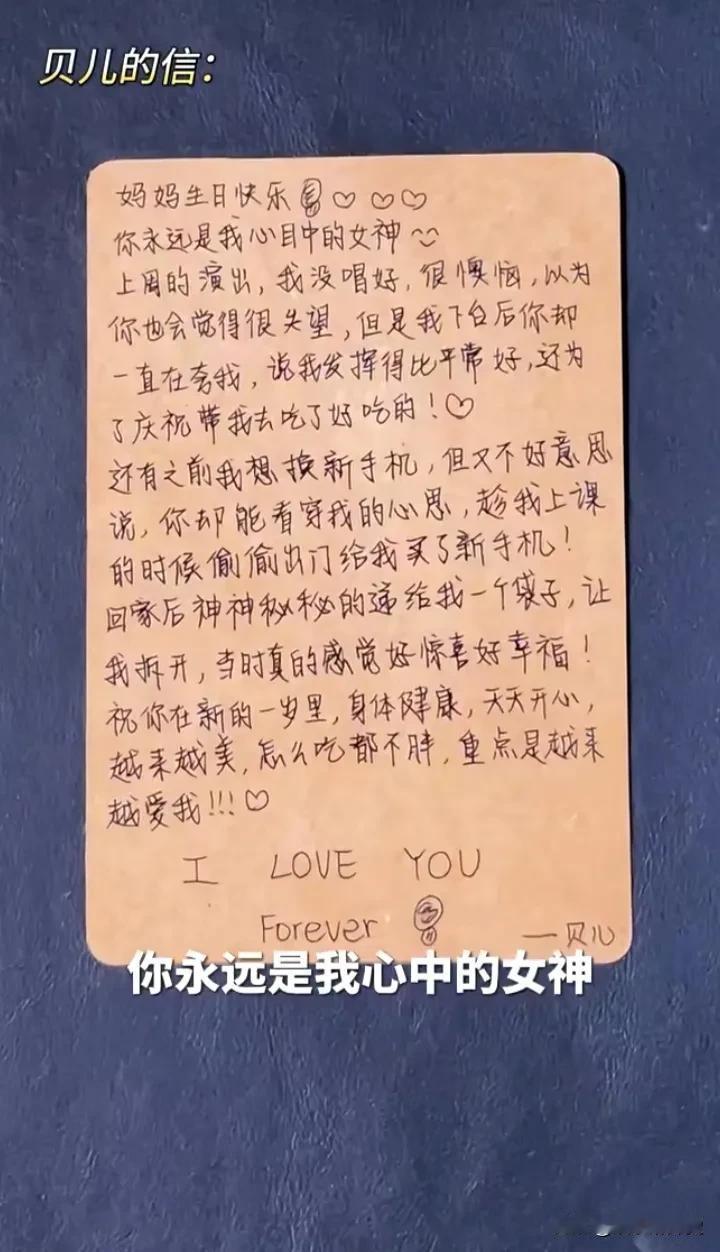 贝儿的信：
妈妈生日快乐
你永远是我心目中的女神
上周的演出，我没唱好，很懊恼，以为
你也会觉得很失望，但是我下台后你却
一直在夸我，说我发挥得比平常好，还为
了庆祝带我去吃了好吃的！
还有之前我想换新手机，但又不好意思
说，你却能看穿我的心思，趁我上课
的时候偷偷出门给我买了新手机！
回家后神神秘秘的递给我一个袋子，让
我拆开，当时真的感觉好惊喜好幸福！
祝你在新的一岁里，身体健康，天天开心，
越来越美，怎么吃都不胖，重点是越来
越爱我!!!
I LOVE YOU
Forever
——贝儿
你永远是我心中的女神